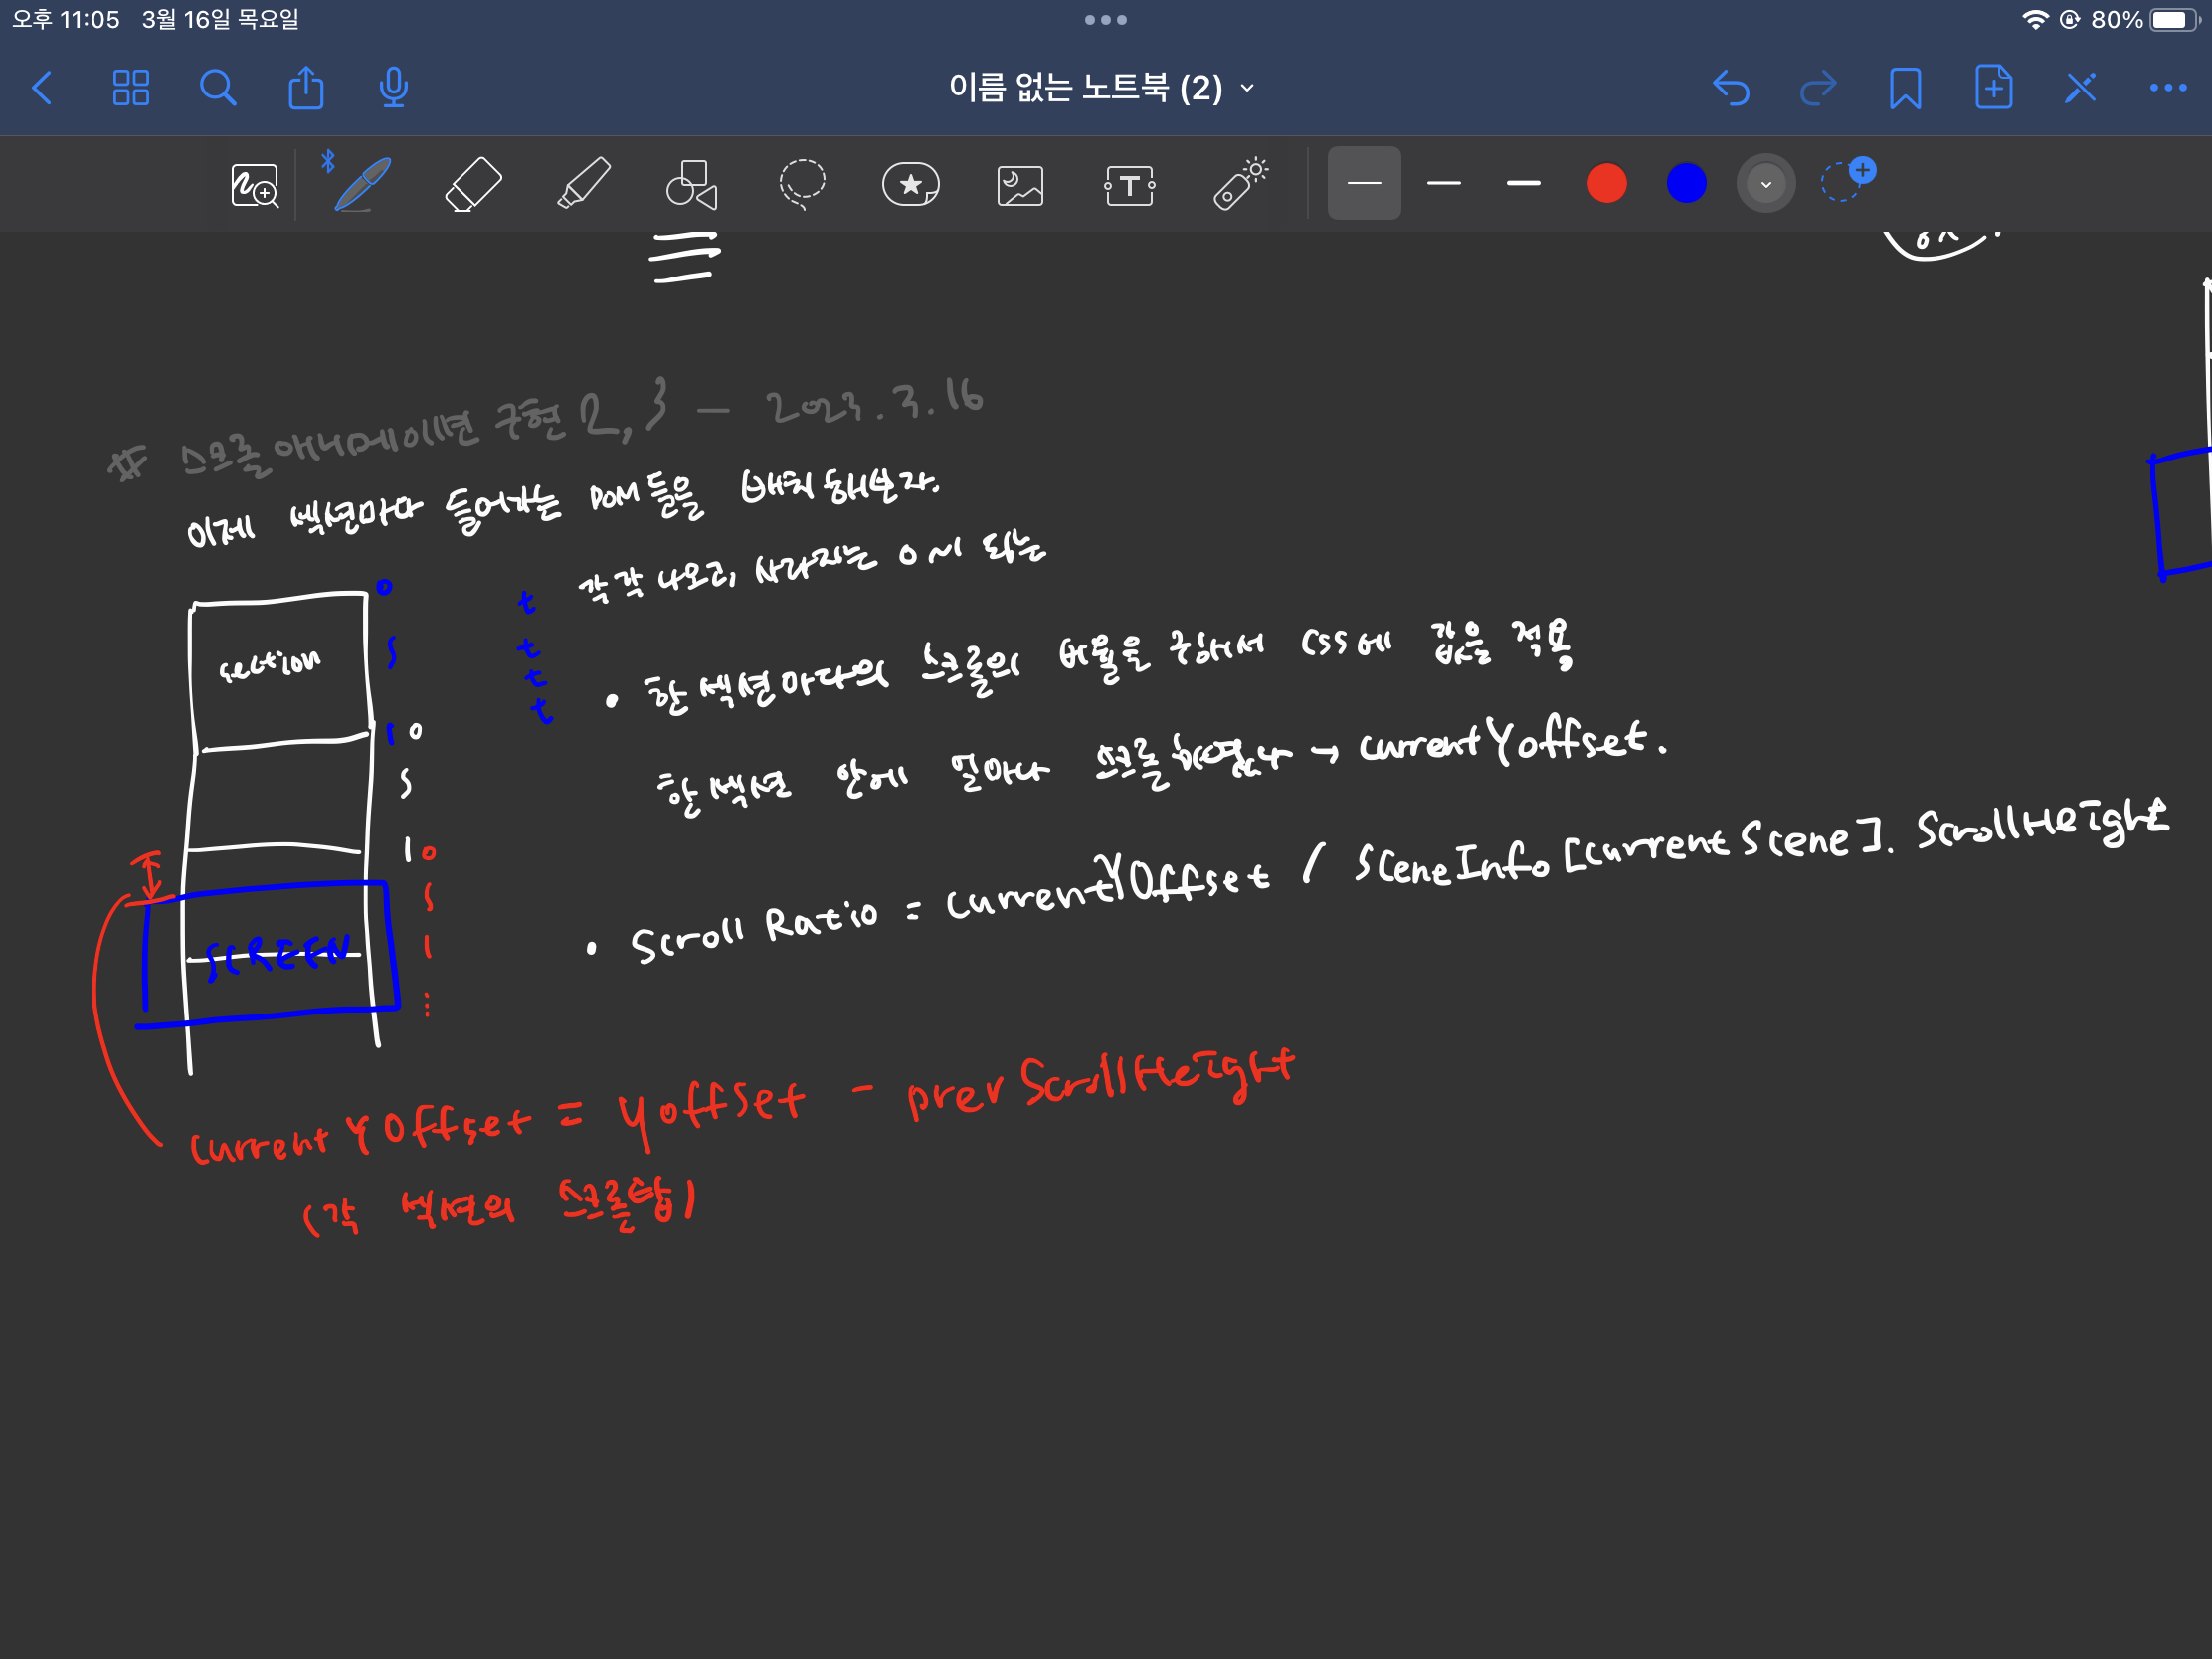 오후 11:05 3월 16일 목요일
80%
이름 없는 노트북 (2)
T
# 스크롤 애니메이션 구현 2, 3 - 2023.3.16
이제 섹션마다 들어가는 DOM들을 배치해보자.
각각 나오고, 사라지는
section
0
S
1
0
S
1
0
S
1
t
t
t
t
• 한 섹션마다의 스크롤의 비율을 구해서 css에 값을 적용
한 섹션 안에 얼마나 스크롤 → currentYoffset.
• Scroll Ratio = currentYOffset / SceneInfo [currentScene]. ScrollHeight
SCREEN
current YOffset = Yoffset - prevScrollHeight
(각 섹션의